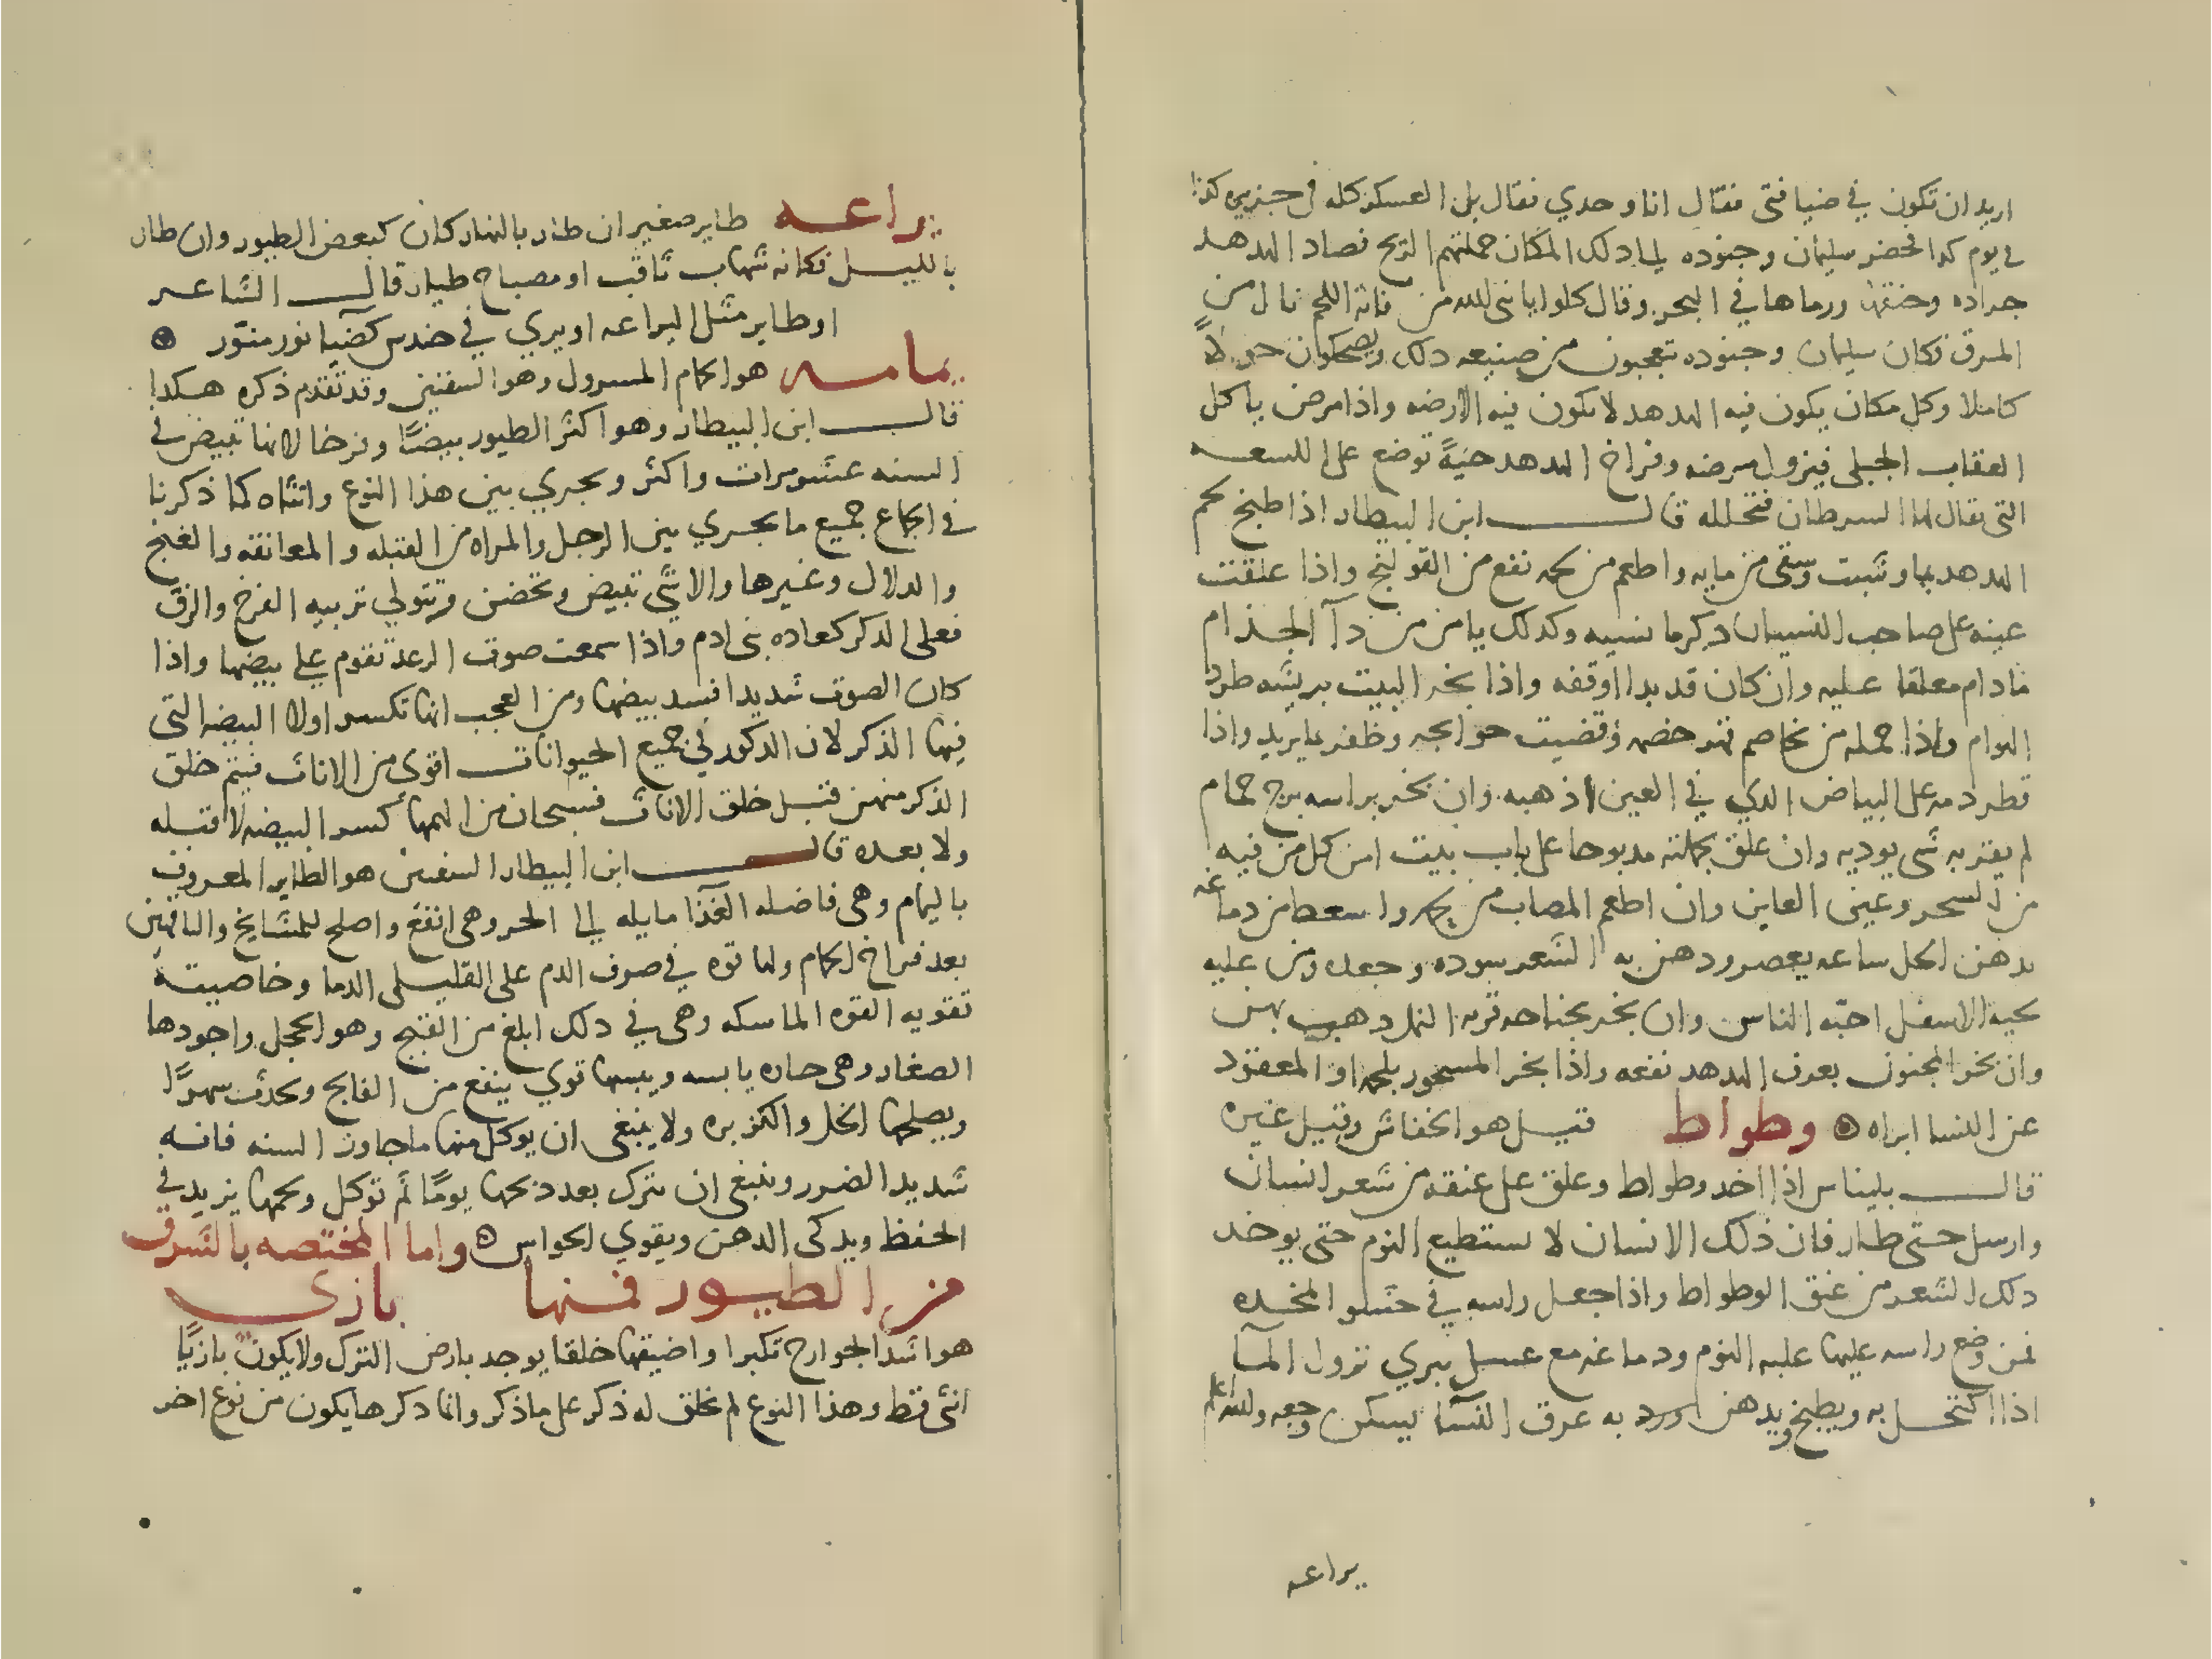 اريد ان تكون في ضيافتي فقال انا وحدي فقال بل العسكر كله في جزيره كذا
في يوم كدا فحضر سليمان وجنوده الي ذلك المكان حملتهم الريح فصاد الهدهد
جراده وخنقها ورماها في البحر وقال كلوا يا نبي الله من فاته اللحم نال من
المرق فكان سليمان وجنوده تتعجبون من صنيعه دلك ويضحكوان حولاً
كاملا وكل مكان يكون فيه الهدهد لا يكون فيه الارضه واذا مرض ياكل
العقاب الجبلي فيزول مرضه وفراخ الهدهد حيةً توضع على اللسعه
التي يقال لها السرطان فتحلله قال ابن البيطار اذا طبخ لحم
الهدهد بما وشبت وسقى من مايه واطعم من لحمه نفع من القولنج واذا علقت
عينه على صاحب النسيان دكر ما نسيه وكدلك يامن من دآ الجذام
ما دام معلقا عليه وان كان قد بدا اوقفه واذا بخر البيت بريشه طرد
الهوام واذا حمله من تخاصم قهر خصمه وقضيت حوايجه وظفر بما يريد واذا
قطر دمه على البياض الدي في العين اذهبه وان بخر براسه برج حمام
لم يقربه شي يوديه وان علق بجملته مدبوحا على باب بيت امن كل من فيه
من السحر وعين العاين وان اطعم المصاب من لحمه واسعط من دماغه
بدهن الحل ساعه يعصر ودهن به الشعر سوده وجعده ومن عليه
لحيه الاسفل احبّه الناس وان بخر بجناحه قريه النمل دهب بهن
وان بخر المجنون بعرف الهدهد نفعه واذا بخر المسحور بلحمه او المعقود
عن النسا ابراه وطواط قيل هو الخفاش وقيل غيره
قال بليناس اذا اخد وطواط وعلق على عنقه من شعر انسان
وارسل حتى طار فان ذلك الانسان لا يستطيع النوم حتى يوخد
دلك الشعر من عنق الوطواط واذا جعل راسه في حشو المخده
فمن وضع راسه عليها غلبه النوم ودماغه مع عسل يبري نزول المآ
اذا اكتحل به ويطبخ ويدهن ورد به عرق النسآ يسكن وجعه والله اعلم
يراعه
يراعه طاير صغير ان طار بالنهار كان كبعض الطيور وان طار
بالليل فكانه شهاب ثاقب او مصباح طيار قال الشاعر
او طاير مثل اليراعه او يري في حندس كضيا نور منوّر
يمامه هو الحمام المسرول وهو السفنين وقد تقدم ذكره هكدا
قال ابن البيطار وهو اكثر الطيور بيضًا وفرخا لانها تبيض في
السنه عشر مرات واكثر ويجري بين هذا النوع وانثاه كما ذكرنا
في الجماع جميع ما يجري بين الرجل والمراه من القبله والمعانقه والغنج
والدلال وغيرها والانثى تبيض وتحضن وتتولي تربيه الفرخ والزق
فعلى الدكر كعاده بني ادم واذا سمعت صوت الرعد تقوم علي بيضها واذا
كان الصوت شديدا فسد بيضها ومن العجب انها تكسر اولا البيضه التي
فيها الذكر لان الدكور في جميع الحيوانات اقوى من الاناث فيتم خلق
الذكر منهن قبل خلق الاناث فسبحان من الهمها كسر البيضه لا قبله
ولا بعده قال ابن البيطار السفنين هو الطاير المعروف
باليمام وهي فاضله الغذآ مايله الي الحر وهي انفع واصلح للمشايخ والناقهين
بعد فراخ الحمام ولها قوه في صرف الدم على القليلي الدما وخاصيته
تقويه القوه الماسكه وهي في دلك ابلغ من القبج وهو الحجل واجودها
الصغار وهي حاره يابسه ويبسها قوي ينفع من الفالج ويحدث سهرًا
ويصلحها الخل والكزبره ولا ينبغي ان يوكل منها ما جاوز السنه فانه
شديد الضرر وينبغي ان تترك بعد دبحها يومًا ثم توكل ولحمها يزيد في
الحفظ ويدكى الدهن ويقوي الحواس واما المختصه بالشرف
من الطيور فمنها بازي
هو اشد الجوارح تكبرا واضيقها خلقا يوجد بارض الترك ولا يكون بازيًا
انثى قط وهذا النوع لم يخلق له ذكر على ما ذكر وانما دكرها يكون من نوع اخر